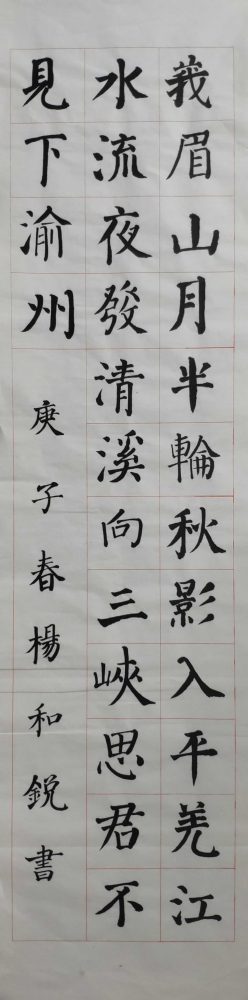 莪眉山月半輪秋影入平羌江
水流夜發清溪向三峽思君不
見下渝州
庚子春楊和銳書